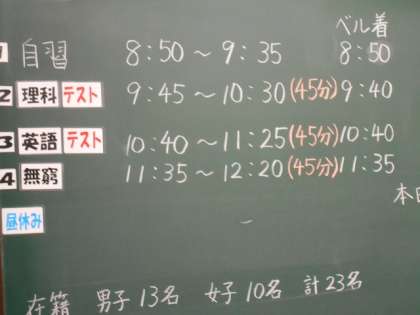 ベル着
1 自習 8:50 ～ 9:35 8:50
2 理科 テスト 9:45 ～ 10:30 (45分) 9:40
3 英語 テスト 10:40 ～ 11:25 (45分) 10:40
4 無窮 11:35 ～ 12:20 (45分) 11:35
本日
昼休み
在籍 男子 13名 女子 10名 計 23名